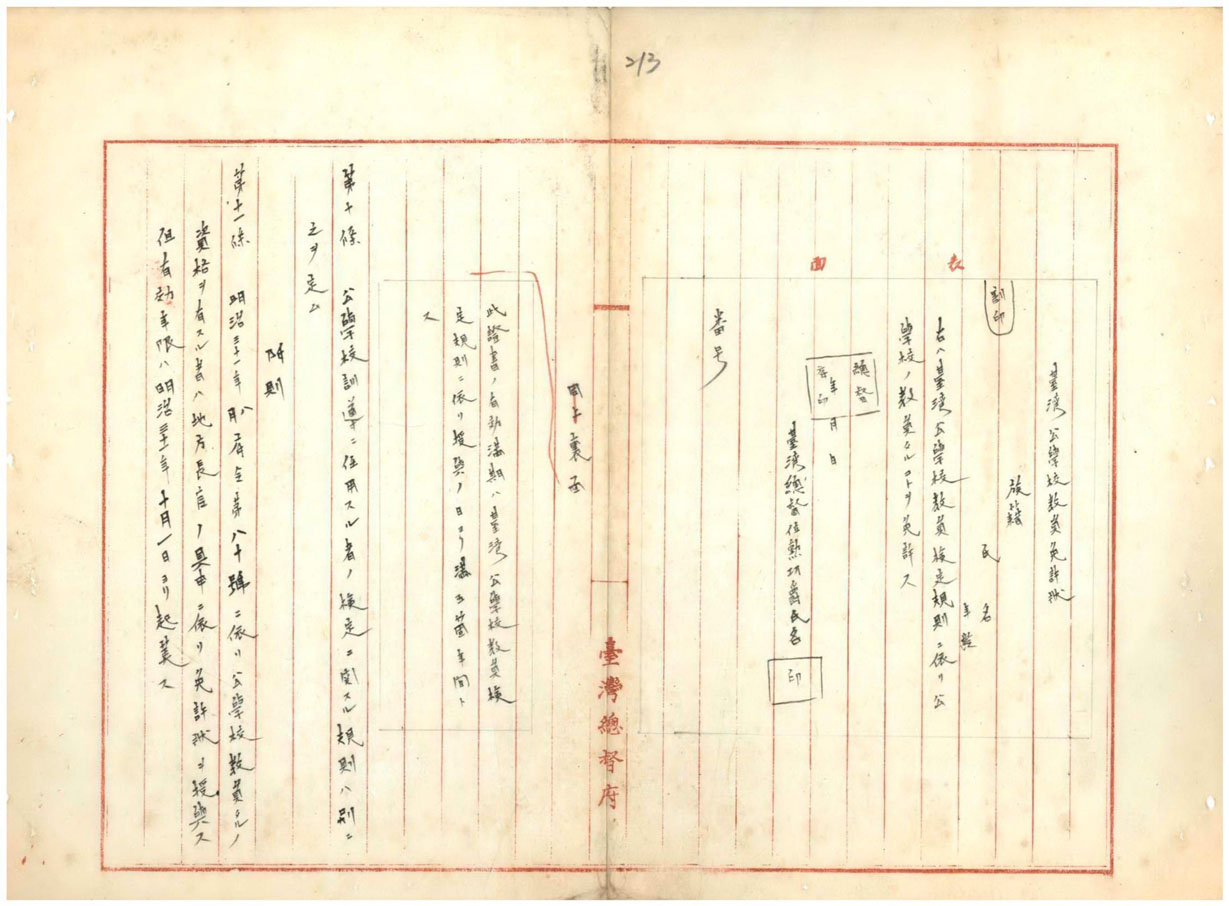 213
表面
臺灣公學校教員免許狀
割印
族籍
氏名
年齡
右ハ臺灣公學校教員檢定規則ニ依リ公
學校ノ教員タルコトヲ免許ス
年月日
總督府印
臺灣總督位勲功爵氏名
印
番号
臺灣總督府
同上裏面
此證書ノ有効滿期ハ臺灣公學校教員檢
定規則ニ依リ授與ノ日ヨリ滿五箇年間ト
ス
第十條 公學校訓導ニ任用スル者ノ檢定ニ関スル規則ハ別ニ
之ヲ定ム
附則
第十一條 明治三十一年八月府令第八十號ニ依リ公學校教員タルノ
資格ヲ有スル者ハ地方長官ノ具申ニ依リ免許狀ヲ授與ス
但有効年限ハ明治三十一年十月一日ヨリ起算ス